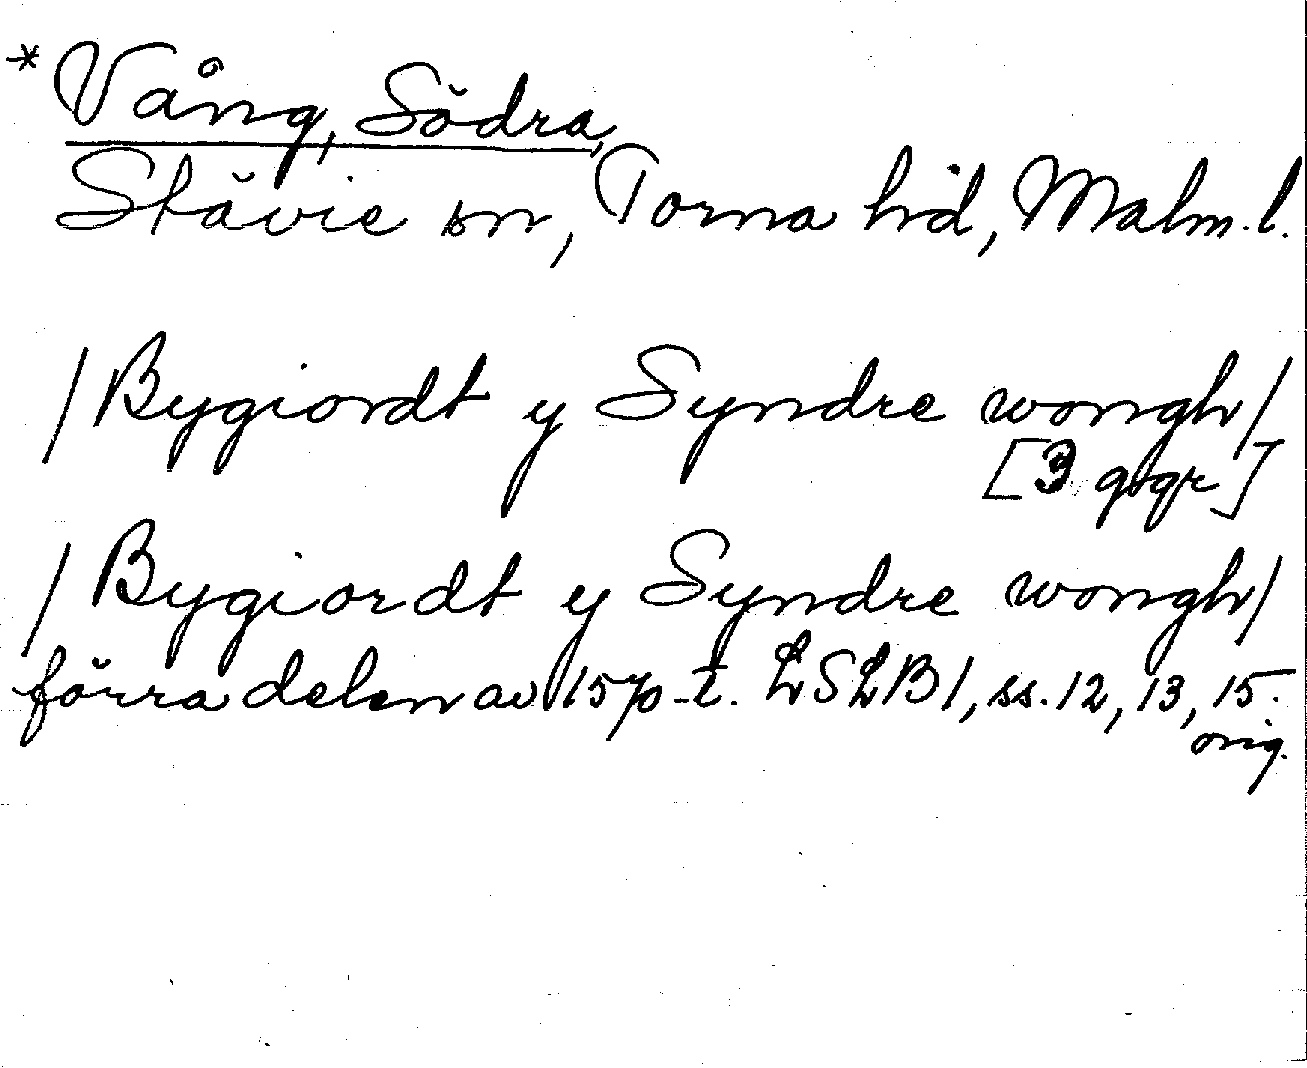 * Vång, Södra,
Stävie sn, Torna hd, Malm. l.
/Bygiordt y Syndre wongh/
[3 ggr]
/Bygiordt y Syndre wongh/
förra delen av 1570-t. LSLB 1, ss. 12, 13, 15.
orig.